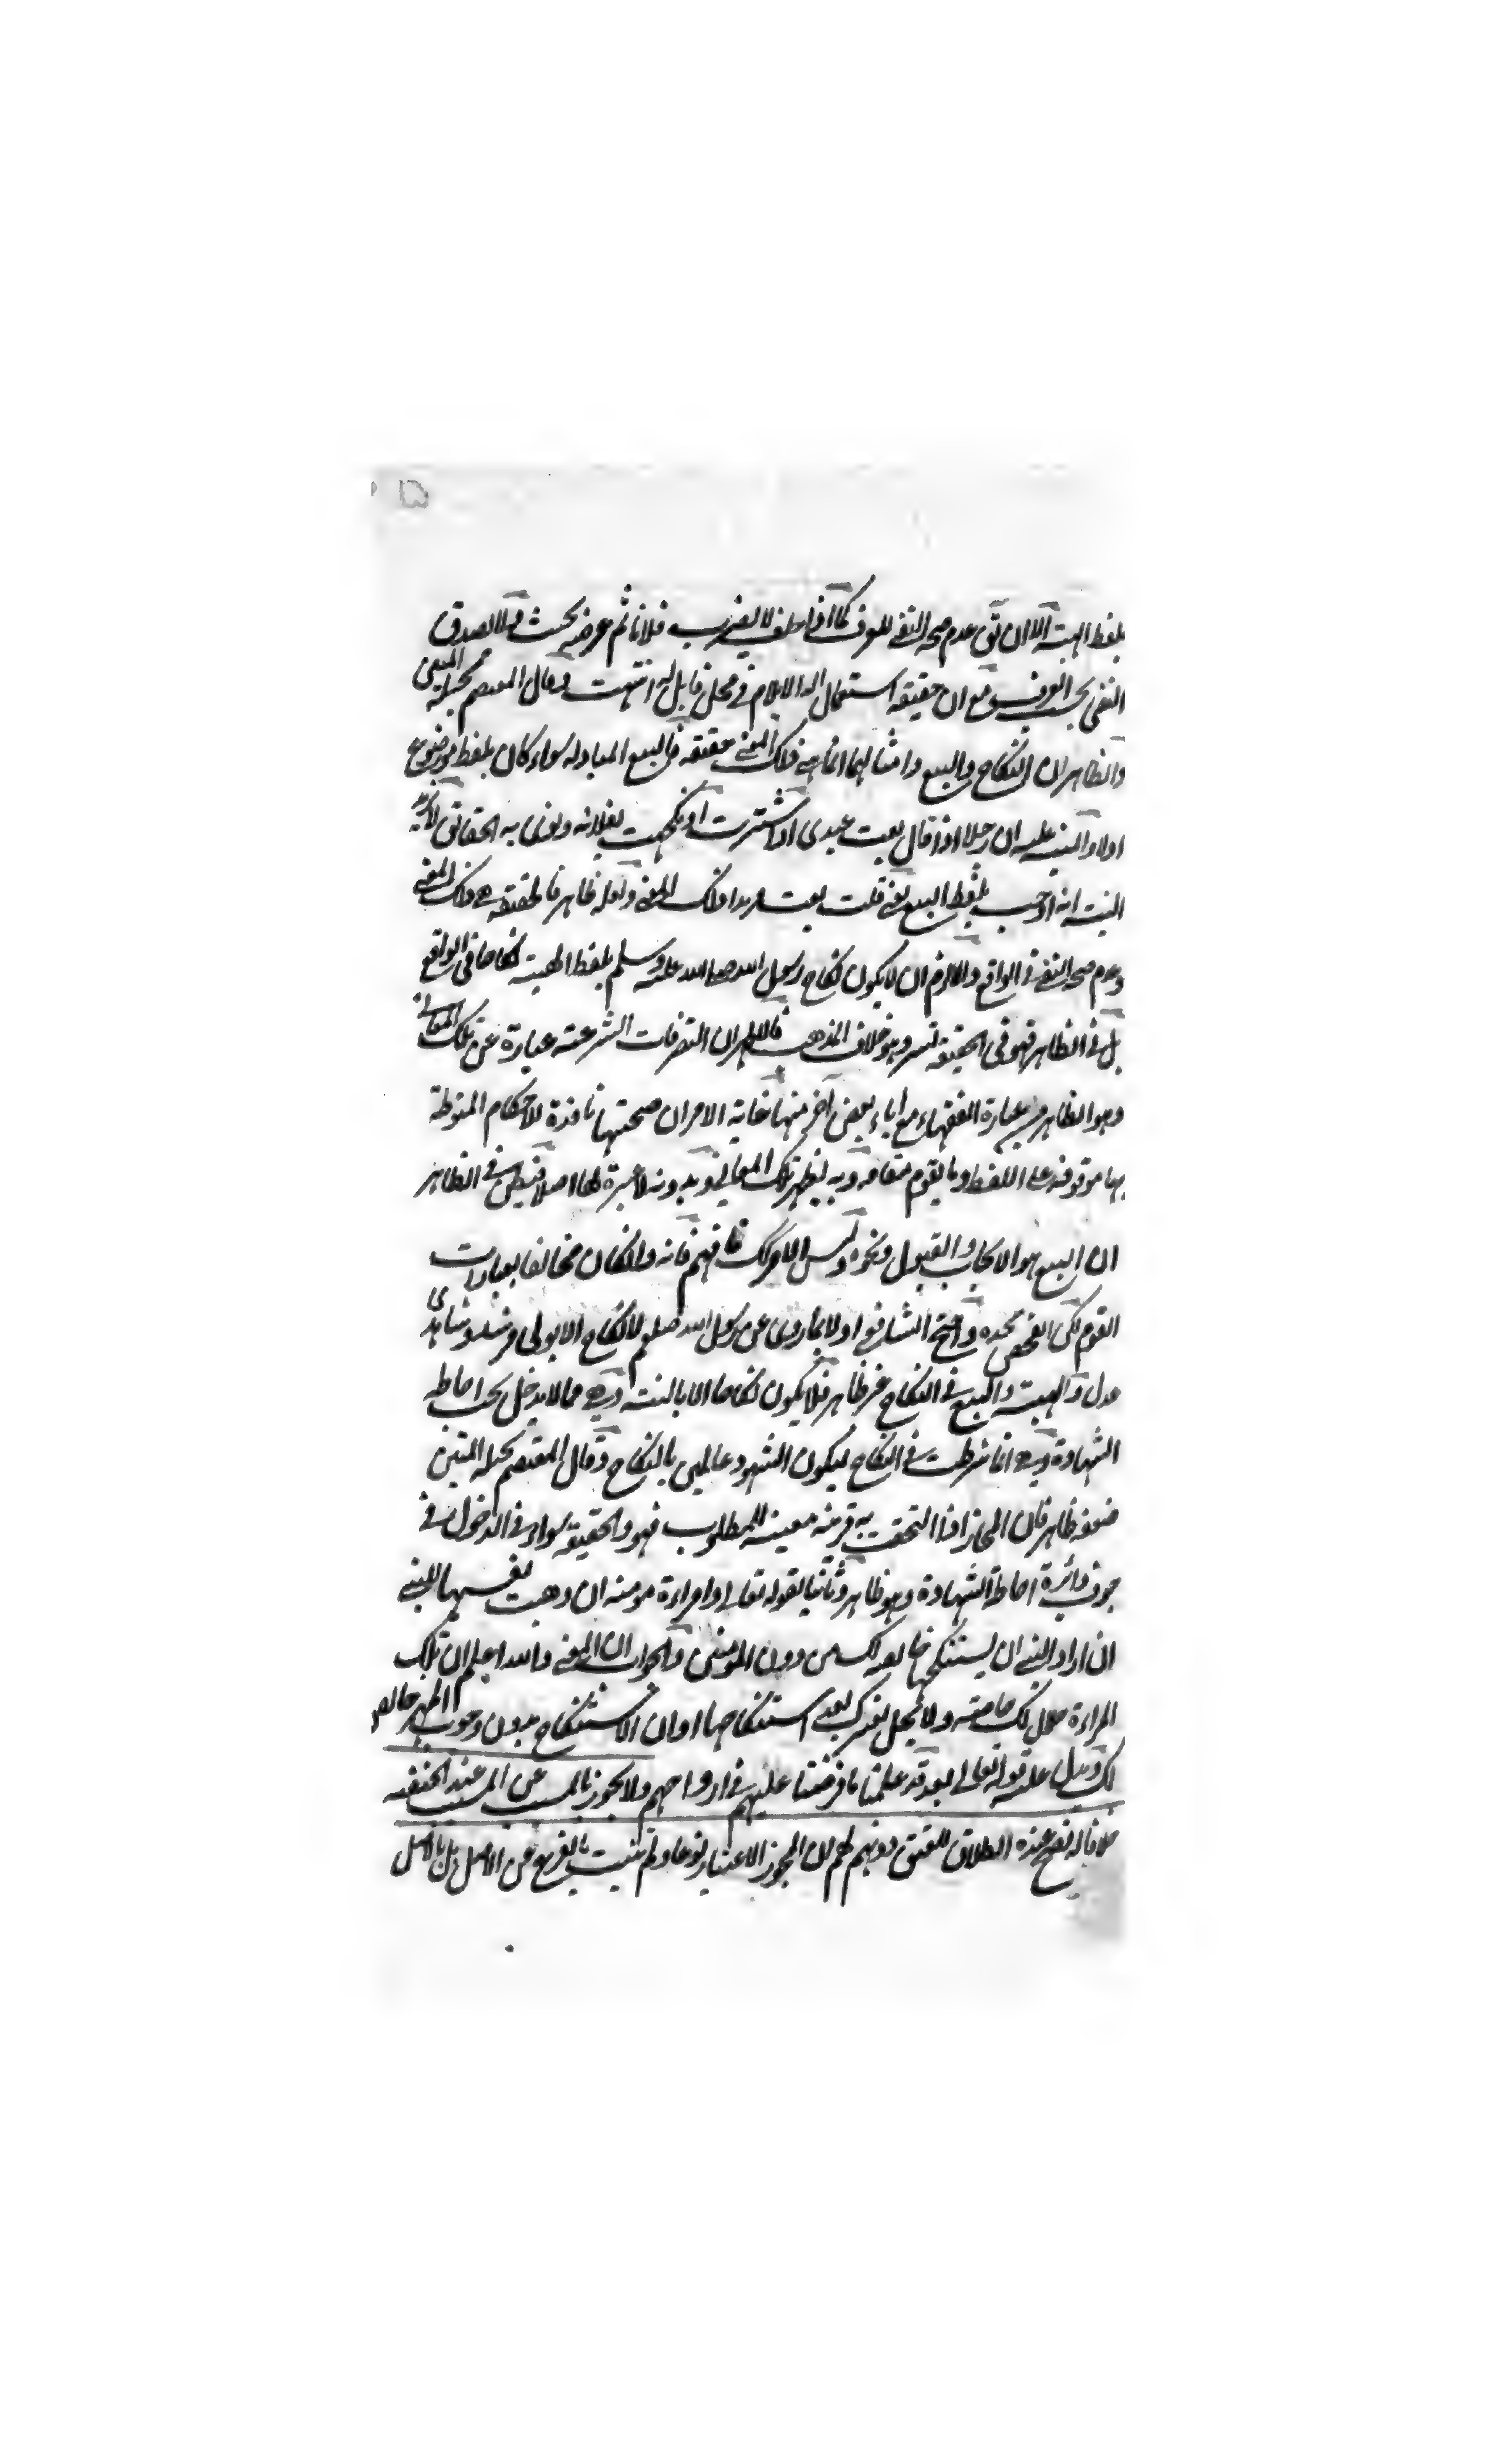 بلفظ الهبة الا ان يق عدم صحة النفى للعرف كما اذا حلف لا يضرب فلانا ثم عرضه يحنث ولا يصدق
النفى بحسب العرف مع ان حقيقة استعمال الة الايلام فى محل قابل له انتهت وقال المعتصم بحبله المتين
والظاهر ان النكاح والبيع وامثالهما انما هى ذلك المعنى حقيقة فالبيع المبادلة سواء كان بلفظ موضوع
اولا والمنبه عليه ان رجلا اذا قال بعت عبدى او اشتريت او نكحت بفلانة ونوى به الحقائق
البتة انه اوجب بلفظ البيع يعنى قلت بعت مريدا ذلك المعنى ولعله ظاهر فالحقيقة هى ذلك المعنى
وعدم صحة النفى فى الواقع واللازم ان لا يكون نكاح رسول الله صلى الله عليه وسلم بلفظ الهبة نكاحا فى الواقع
بل فى الظاهر فهو فى الحقيقة تسر وهو خلاف المذهب فالاظهر ان التصرفات الشرعية عبارة عن تلك المعانى
وهو الظاهر من عبارة الفقهاء مع اباء بعض اخر منها غاية الامر ان صحتها نافذة للاحكام المنوطة
بها موقوفة على اللفظ وما يقوم مقامه وبه يظهر تلك المعانى وبدونه لا عبرة لها اصلا فيظن فى الظاهر
ان البيع هو الايجاب والقبول ونحوه وليس الامر كك فافهم فانه وان كان مخالفا بعبارات
القوم لكن الفحص يجده واحتج الشافعى اولا بما روى عن رسول الله صلعم لا نكاح الا بولى مرشد وشاهدى
عدل والهبة والبيع فى النكاح غير ظاهر فلا يكون نكاحا الا بالنية وهى مما لا يدخل تحت احاطة
الشهادة وهى انما شرطت فى النكاح ليكون الشهود عالمين بالنكاح وقال المعتصم بحبله المتين
ضعفه ظاهر فان المجاز اذا التحقت به قرينة معينة للمطلوب فهو والحقيقة سواء فى الدخول فى
جوف دائرة احاطة الشهادة وهو ظاهر وثانيا بقوله تعالى وامراءة مومنة ان وهبت نفسها للنبى
ان اراد النبى ان يستنكحها خالصة لك من دون المومنين والجواب ان المعنى والله اعلم ان تلك
المراءة حلال لك خاصة ولا يحل لغيرك بعد استنكاحها او ان الاستنكاح بدون وجوب المهر خالص
لك ويدل عليه قوله تعالى بعد قد علمنا ما فرضنا عليهم فى ازواجهم ولا يجوز بالمسبب عن السبب عند الحنفيه
خلافا له فيصح عنده الطلاق للعتق دونهم لهم ان المجوز الاعتبار نوعا ولم يثبت بالفرع عن الاصل بل بالاصل